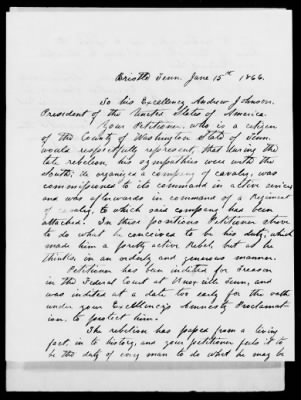 Bristol Tenn. June 15th 1866.
To his Excellency Andrew Johnson.
President of the United States of America.
Your Petitioner, who is a citizen
of the County of Washington State of Tenn.
would respectfully represent, that during the
late rebellion, his sympathies were with the
South; He organized a company of cavalry, was
commissioned to its command in active service
and was afterwards in command of a Regiment
of cavalry, to which said company had been
attached. In this position Petitioner strove
to do what he conceived to be his duty, which
made him a pretty active Rebel, but as he
thinks, in an orderly and generous manner.
Petitioner has been indited for treason
in the Federal Court at Knoxville Tenn, and
was indited at a date too early for the oath
under your Excellency's Amnesty Proclamat-
ion, to protect him.
The rebelion has passed from a living
fact, in to history, and your petitioner feels it to
be the duty of every man to do what he may be